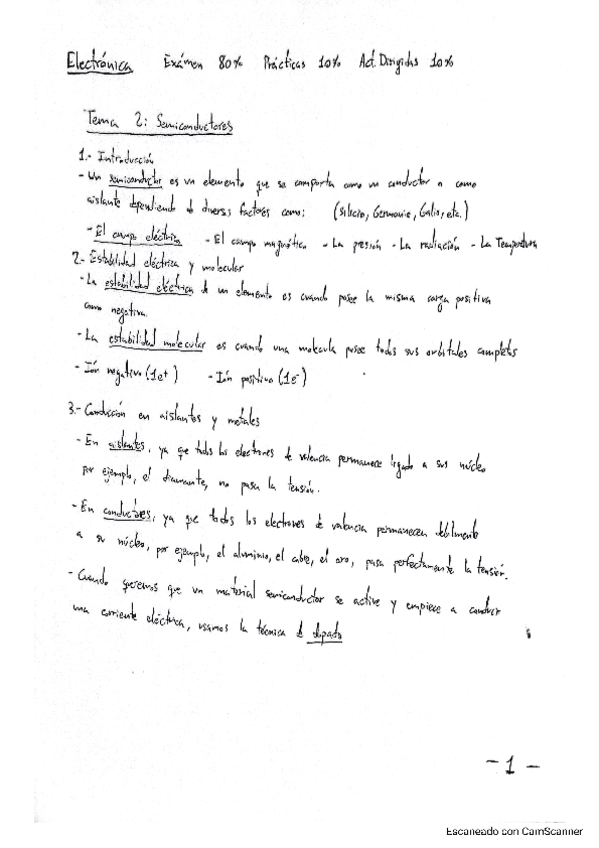 Electrónica Exámen 80% Prácticas 10% Act. Dirigidas 10%
Tema 2: Semiconductores
1.- Introducción
- Un semiconductor es un elemento que se comporta como un conductor o como
aislante dependiendo de diversos factores como: (Silicio, Germanio, Galio, etc.)
- El campo eléctrico - El campo magnético - La presión - La radiación - La Temperatura
2.- Estabilidad eléctrica y molecular
- La estabilidad eléctrica de un elemento es cuando posee la misma carga positiva
como negativa.
- La estabilidad molecular es cuando una molecula posee todos sus orbitales completos
- Ión negativo (1e+) - Ión positivo (1e-)
3.- Conducción en aislantes y metales
- En aislantes, ya que todos los electrones de valencia permanece ligado a sus núcleo
por ejemplo, el diamante, no pasa la tensión.
- En conductores, ya que todos los electrones de valencia permanecen debilmente
a su núcleo, por ejemplo, el aluminio, el cobre, el oro, pasa perfectamente la tensión.
- Cuando queremos que un material semiconductor se active y empiece a conducir
una corriente eléctrica, usamos la técnica de dopado
- 1 -
Escaneado con CamScanner